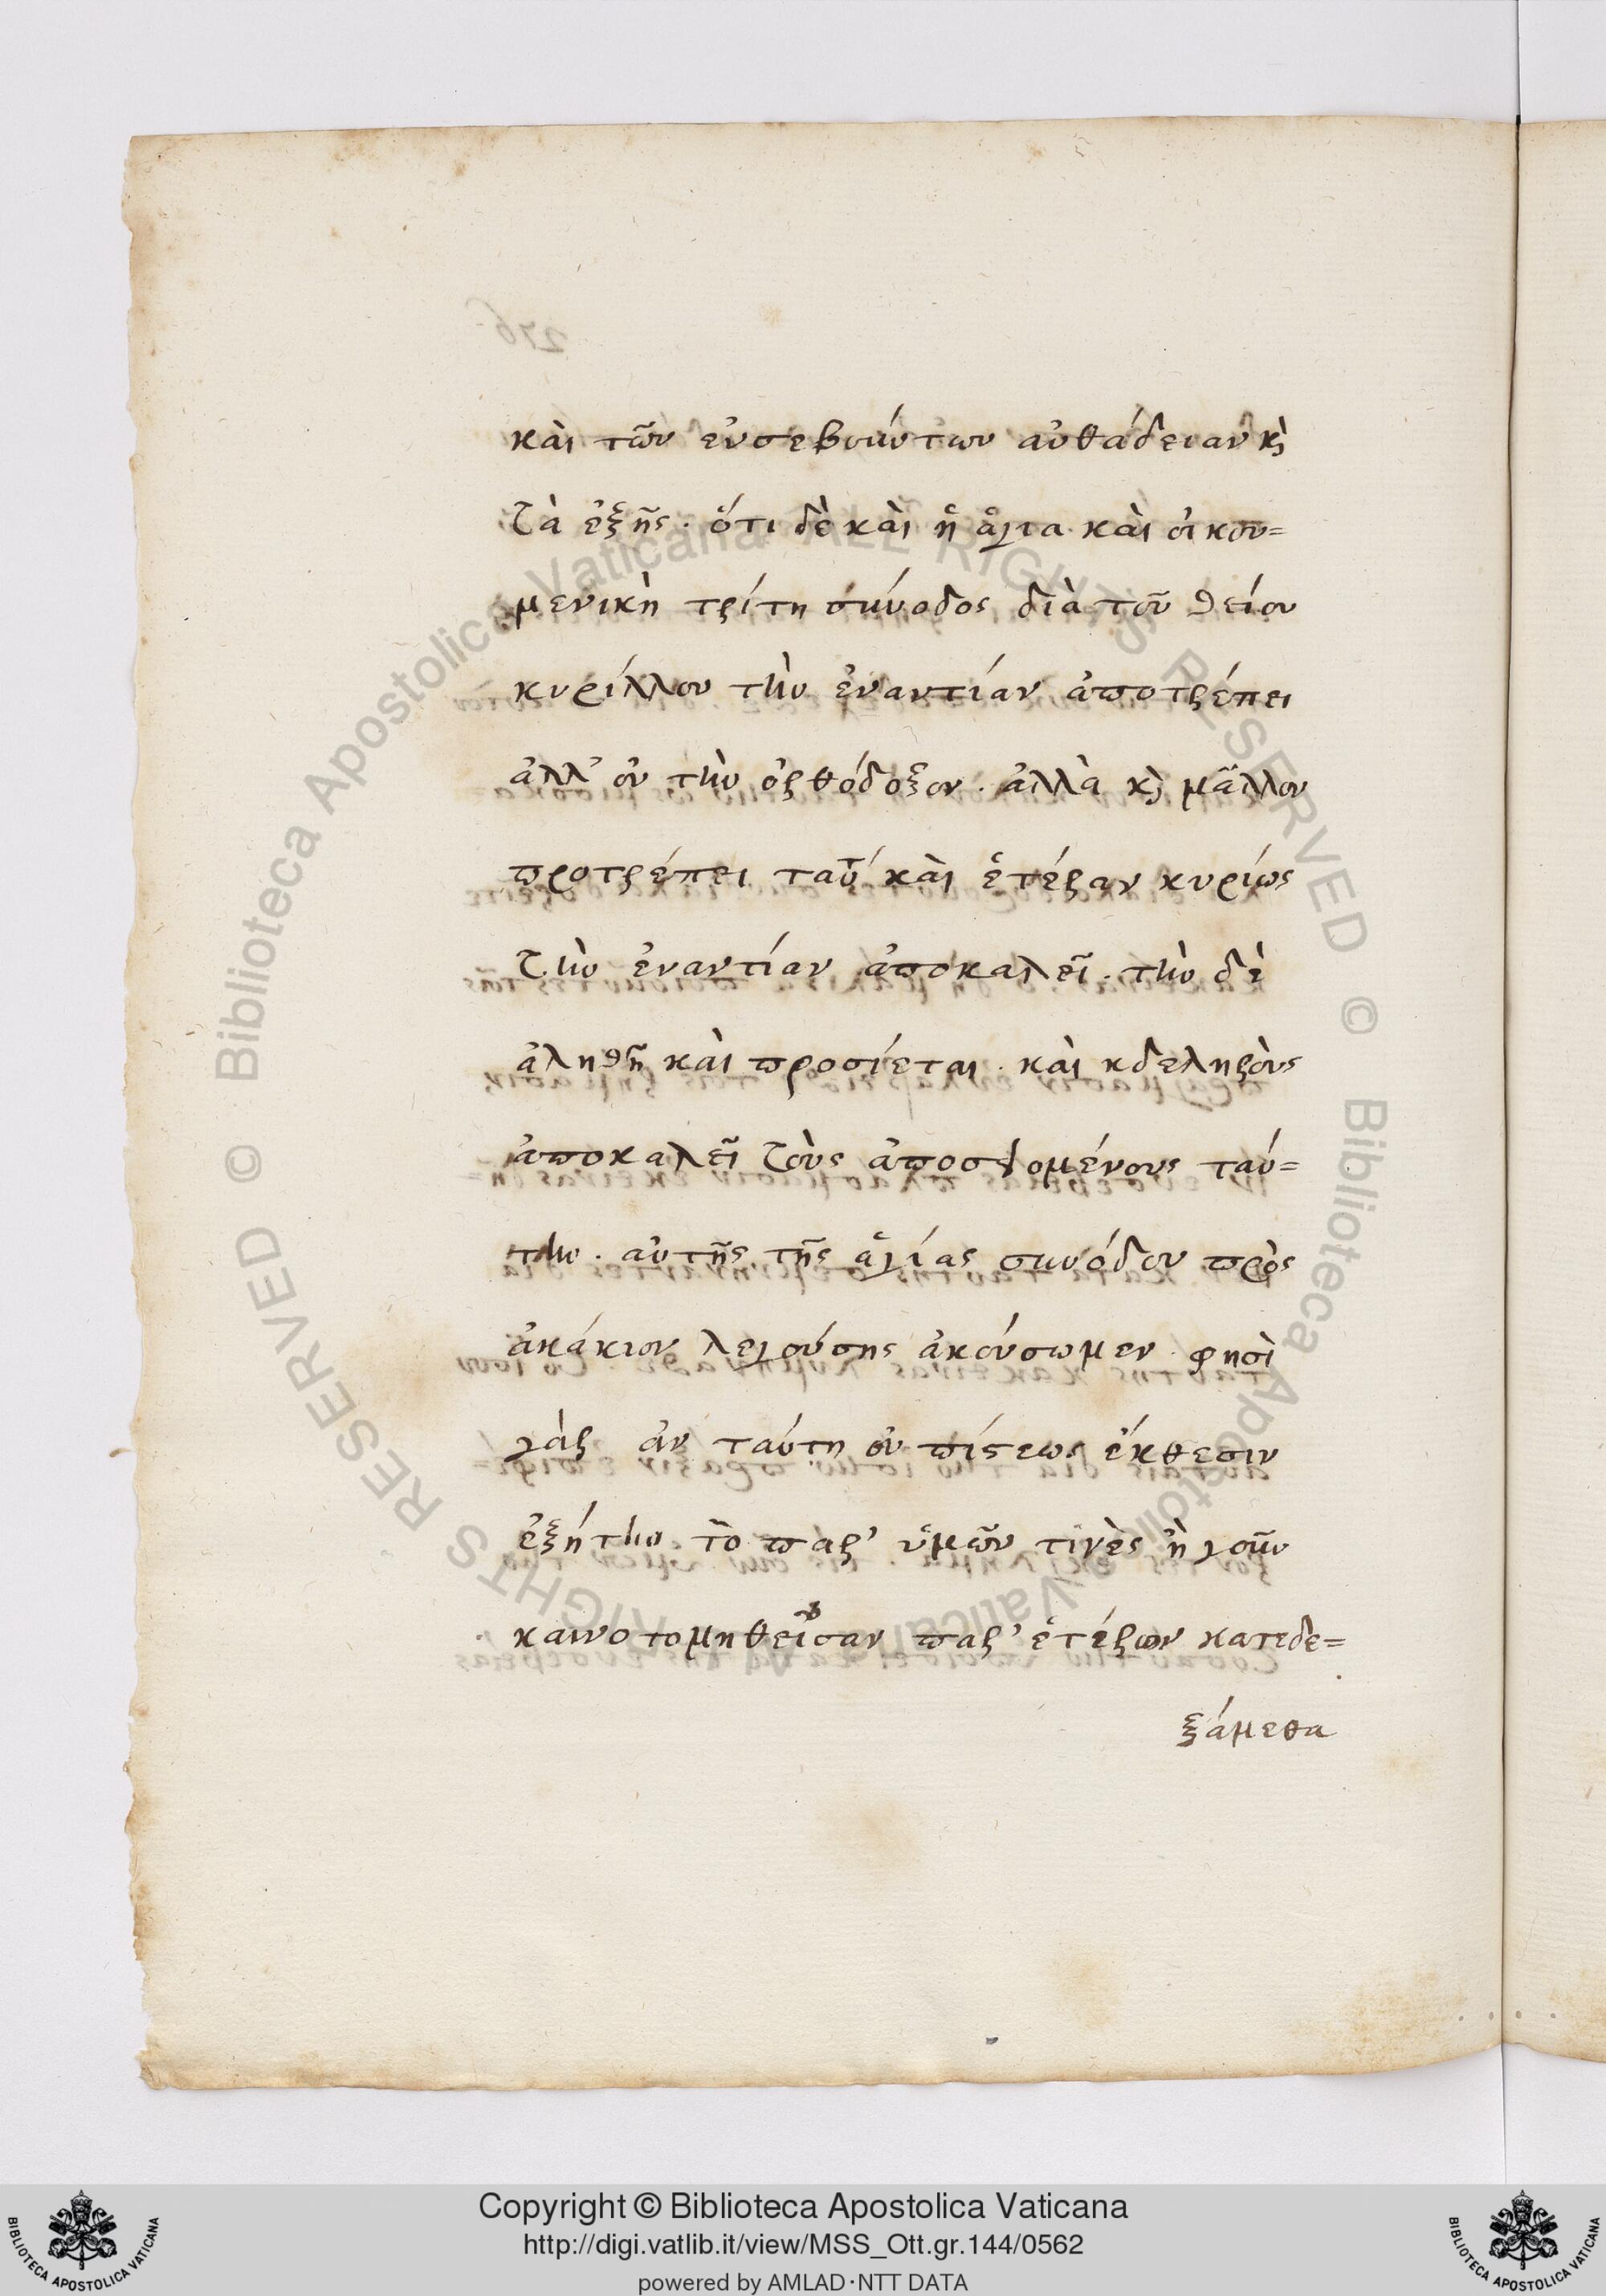 καὶ τῶν εὐσεβούντων αὐθάδειαν κ̀
τὰ ἐξῆς · ὅτι δὲ καὶ ἡ ἁγία καὶ οἰκου=
μενικὴ τρίτη σύνοδος διὰ τοῦ θείου
κυρίλλου τὴν ἐναντίαν ἀποτρέπει
ἀλλ' οὐ τὴν ὀρθόδοξον · ἀλλὰ κ̀ μᾶλλον
προτρέπει καὶ ἑτέραν κυρίως
τὴν ἐναντίαν ἀποκαλεῖ · τὴν δὲ
ἀληθῆ καὶ προσίεται · καὶ
ἀποκαλεῖ τοὺς ταύ=
την · αὐτῆς τῆς ἁγίας συνόδου πρὸς
ἀκάκιον λεγούσης ἀκούσωμεν · φησὶ
γὰρ ἀν ταύτη οὐ πίστεως ἔκθεσιν
ἐξήτην τὸ παρ' ὑμῶν τινὲς ἢ γοῦν
παρ' ἑτέρων κατεδε=
ξάμεθα
276
Copyright © Biblioteca Apostolica Vaticana
http://digi.vatlib.it/view/MSS_Ott.gr.144/0562
powered by AMLAD·NTT DATA
BIBLIOTECA APOSTOLICA VATICANA
BIBLIOTECA APOSTOLICA VATICANA
© Biblioteca Apostolica Vaticana ALL RIGHTS RESERVED
© Biblioteca Apostolica Vaticana ALL RIGHTS RESERVED